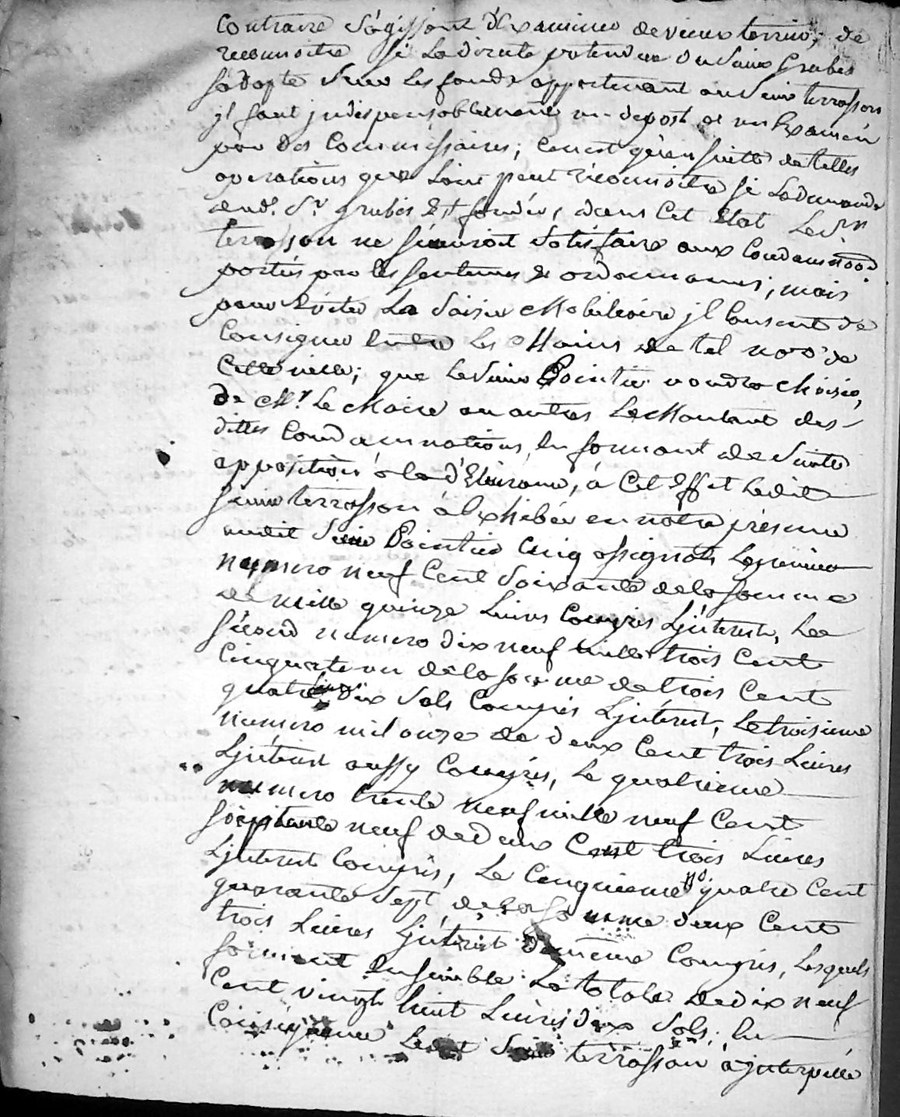 Contraire s'agissant d'Examiner de vieux terriers, de
reconnoitre si la directe pretendue du sieur Grubis
s'adapte sur les fonds appartenant au sieur terrasson
jl faut judispensablement un depost et un Examen
par des Commissaires; Ce n'est qu'en suitte de telles
operations que l'on peut reconnoitre si la demande
dud. Sr. grubis Est fondée, dans Cet Etat Le Sr
terrasson ne sçauroit satisfaire aux Condamnaons
portées par les sentences & ordonnances, mais
pour Eviter La Saisie Mobiliaire jl Consent de
Consigner Entre Les Mains de tel nore de
Cette ville, que le sieur Pointier voudra choisir,
de Mr. Le Maire ou autres Le Montant des-
dittes Condamnations, En formant de suitte
opposition à la délivrance, à Cet Effet Ledit
sieur terrasson à Exhibé en notre présence
audit Sieur Pointier Cinq assignats Le premier
numero neuf Cent Soixante de la somme
de mille quinze Livres Compris L'jnterest, Le
second numero dix neuf mille trois Cent
Cinquante un de la somme de trois Cent
quatre dix sols Compris L'jnterest, Le troisieme
numero mil onze de deux Cent trois Livres
L'jnterest aussy Compris, Le quatrieme
numero trente neuf mille neuf Cent
soixante neuf de deux Cent trois Livres
L'jnterest Compris, Le Cinquieme no. quatre Cent
quarante Sept de la somme deux Cent
trois Livres L'jnterest de même Compris, Lesquels
forment Ensemble Le total de dix neuf
Cent vingt huit Livres dix sols; En
Conséquence Ledit Sieur terrasson à jnterpellé